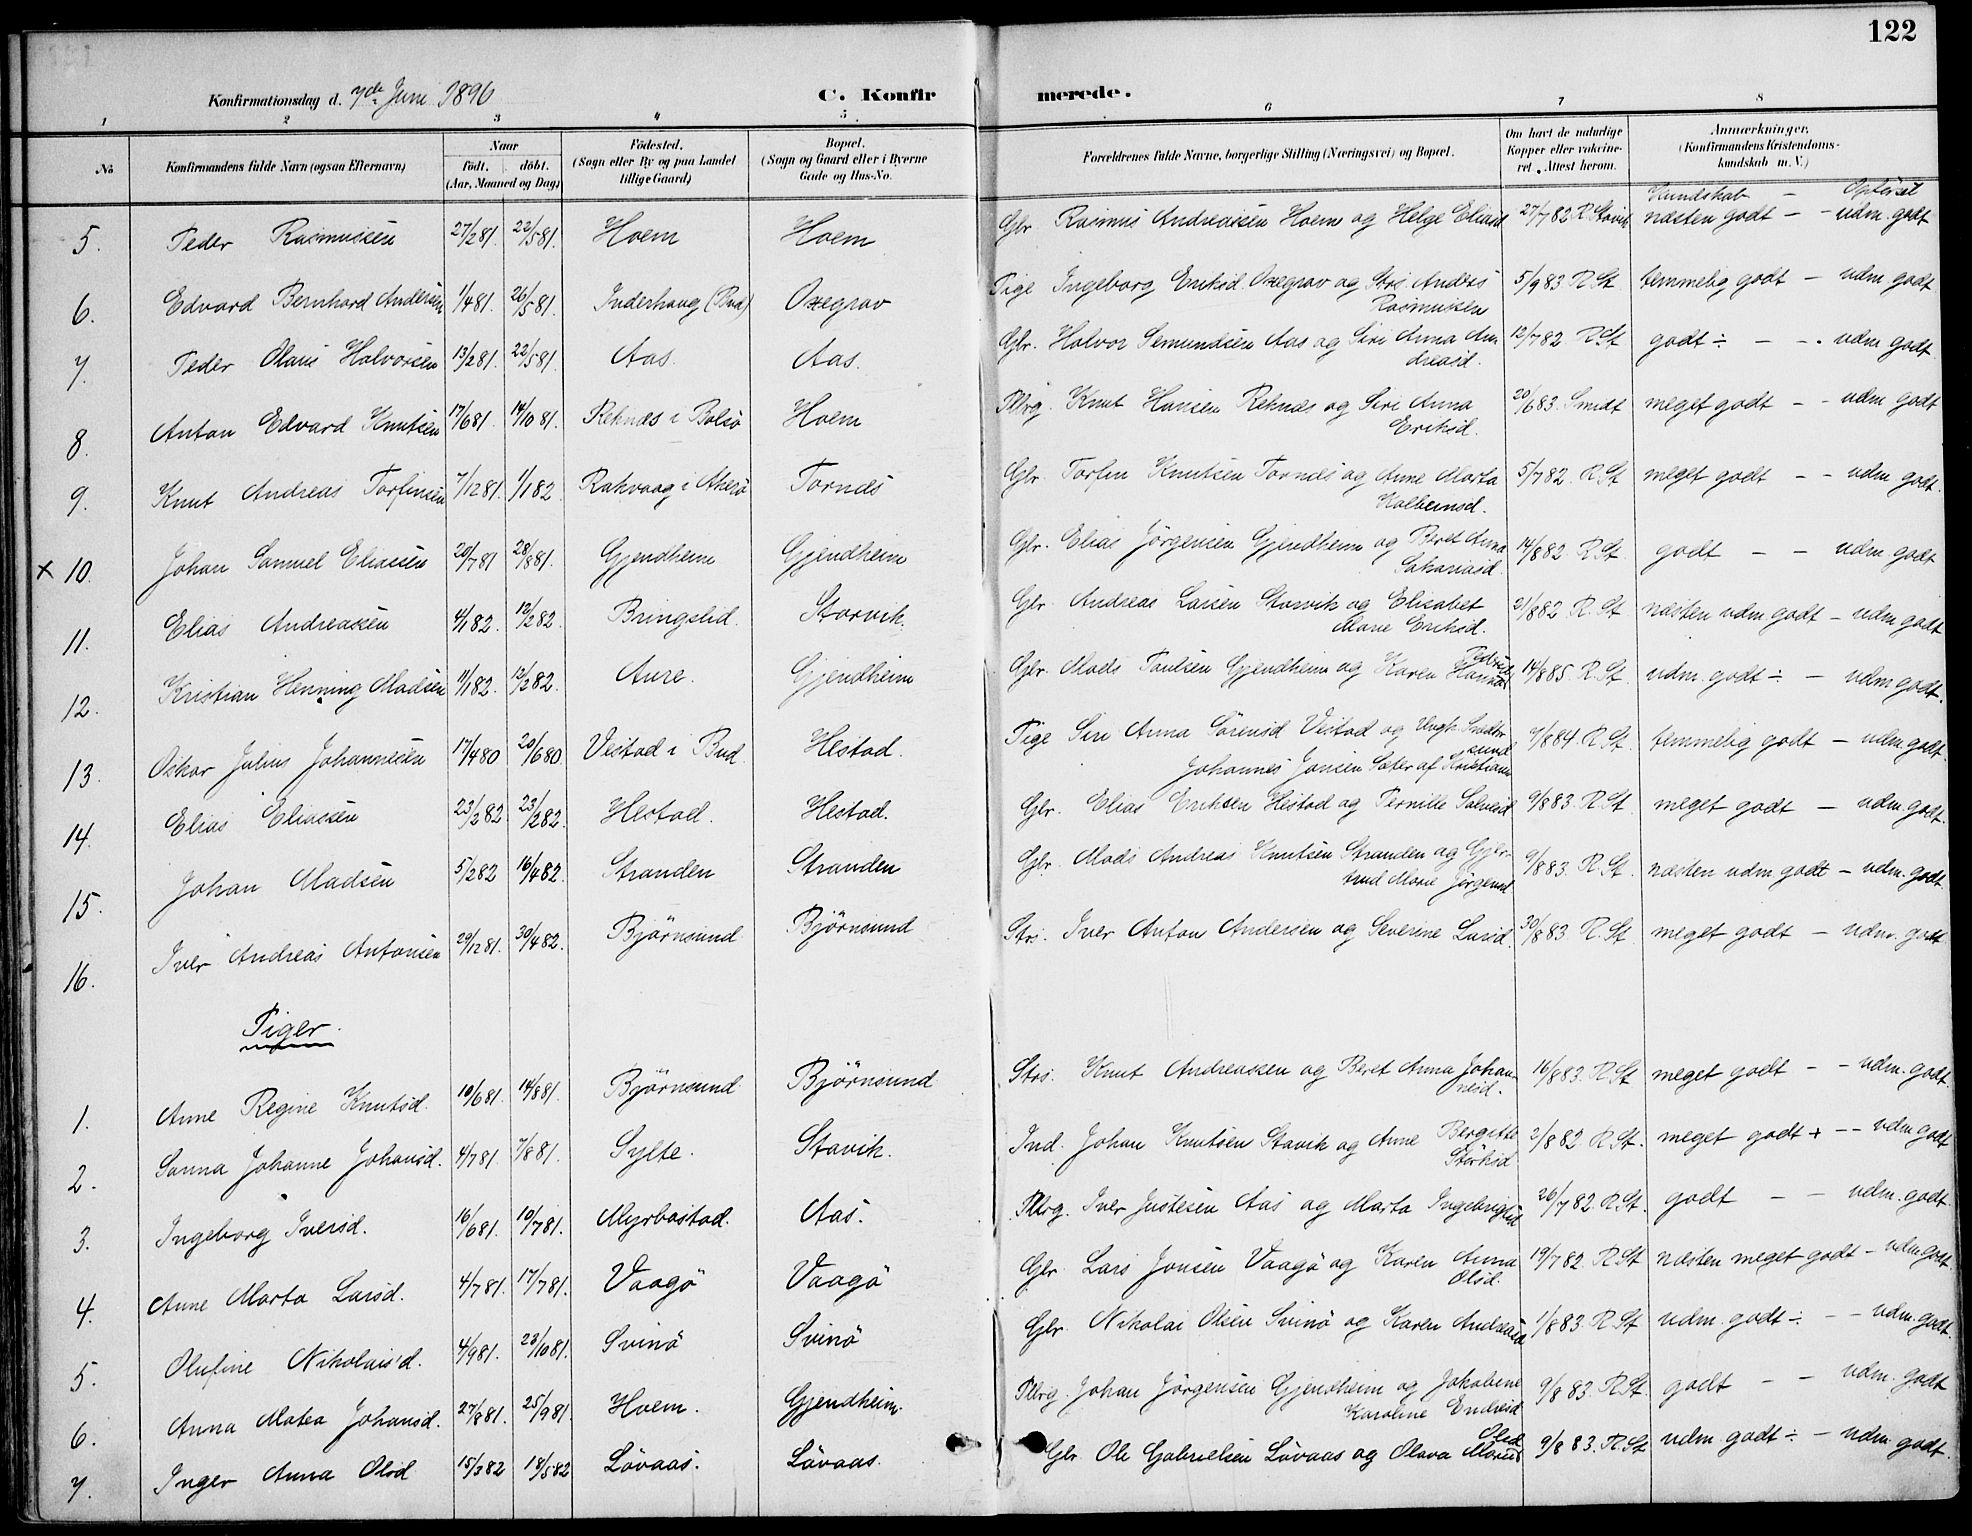 122
Konfirmationsdag d. 7de Juni 1896 C. Konfirmerede.
1 2 3 4 5 6 7 8
No Konfirmandens fulde Navn (ogsaa Efternavn) Naar födt. döbt. (Aar, Maaned og Dag) Födested. (Sogn eller By og paa Landet tillige Gaard) Bopæl. (Sogn og Gaard eller i Byerne Gade og Hus-No. Forældrenes fulde Navne, borgerlige Stilling (Næringsvei) og Bopæl. Om havt de naturlige Kopper eller vakcineret. Attest herom. Anmærkninger. (Konfirmandens Kristendomskundskab m. V.)
Kundskab – Opførsel
5. Peder Rasmussen 27/2 81. 22/5 81. Hoem Hoem Gbr. Rasmus Andreassen Hoem og Helge Eliasd 27/7 82 R. Stavik næsten godt – – udm. godt
6. Edvard Bernhard Andersen 1/4 81. 26/5 81. Inderhaug (Bud) Oxegrav Pige Ingeborg Eriksd. Oxegrav og Strs. Anders Rasmussen 5/9 83 R. St. temmelig godt – udm. godt
7. Peder Olaus Halvorsen 13/2 81. 22/5 81. Aas. Aas. Gbr. Halvor Semundsen Aas og Siri Anna Andreasd. 12/7 82 R. St. godt ÷ – – udm. godt
8. Anton Edvard Knutsen 17/6 81. 14/10 81. Reknæs i Bolsø Hoem Plbrg. Knut Hansen Reknæs og Siri Anna Eriksd. 20/6 83. Smidt meget godt – – udm. godt
9. Knut Andreas Torfinsen 7/12 81. 1/1 82. Rakvaag i Akerø Tornæs Gbr. Torfin Knutsen Tornæs og Anne Marta Kolbeinsd. 5/7 82. R. St. meget godt – – udm. godt.
× 10. Johan Samuel Eliassen 20/7 81 28/8 81. Gjendheim Gjendheim Gbr. Elias Jørgensen Gjendheim og Beret Anna Sakariasd. 14/8 82. R. St. godt – – udm. godt
11. Elias Andreassen 4/1 82. 12/2 82. Bringslid. Storvik. Gbr. Andreas Larsen Storvik og Elisabet Marie Eriksd. 21/8 82 R. St. næsten udm. godt – udm. godt
12. Kristian Henning Madsen 11/1 82. 12/2 82. Aure. Gjendheim Gbr. Mads Paulsen Gjendheim og Karen 14/8 85. R. St. udm. godt ÷ – udm. godt.
13. Oskar Julius Johannesen 17/4 80 20/6 80 Vestad i Bud. Hestad. Pige Siri Anna Sørensd Vestad og Ungk. Johannes Jonsen Sæter af Kristiansund 4/8 84. R. St. temmelig godt – udm. godt.
14. Elias Eliassen 23/2 82 23/2 82. Hestad. Hestad. Gbr. Elias Eriksen Hestad og Pernille Salvesd 9/8 83. R. St. meget godt – udm. godt.
15. Johan Madsen 5/2 82 16/4 82. Stranden Stranden Gbr. Mads Andreas Knutsen Stranden og Gjertrud Marie Jørgensd 9/8 83. R. St. næsten udm. godt – udm. godt.
16. Iver Andreas Antonsen 29/12 81. 30/4 82. Bjørnsund Bjørnsund Strs. Iver Anton Andersen og Severine Larsd. 30/8 83 R. St. meget godt – udm. godt
Piger.
1. Anne Regine Knutsd. 10/6 81. 14/8 81. Bjørnsund Bjørnsund Strs. Knut Andreassen og Beret Anna Johannesd. 16/8 83. R. St. meget godt – – udm. godt.
2. Sanna Johanne Johansd. 4/7 81. 7/8 81. Sylte. Stavik. Ind. Johan Knutsen Stavik og Anne Bergitte Størksd. 2/8 82 R. St. meget godt + – – udm. godt
3. Ingeborg Iversd. 16/6 81. 10/7 81. Myrbostad. Aas. Plbrg. Iver Justesen Aas og Marta Ingebrigtsd 26/7 82. R. St. godt – – udm. godt.
4. Anne Marta Larsd. 4/7 81. 17/7 81. Vaagø Vaagø Gbr. Lars Jonsen Vaagø og Karen Anna Olsd. 19/7 82. R. St næsten meget godt – udm. godt
5. Olufine Nikolaisd. 4/9 81. 23/10 81. Svinø Svinø Gbr. Nikolai Olsen Svinø og Karen Andreasd 1/8 83. R. St udm. godt ÷ – udm. godt.
6. Anna Matea Johansd. 27/8 81. 25/9 81. Hoem. Gjendheim. Plbrg. Johan Jørgensen Gjendheim og Jakobine Karoline Endresd 9/8 83. R. St. godt – – udm. godt
7. Inger Anna Olsd 15/3 82 18/5 82 Løvaas. Løvaas. Gbr. Ole Gabrielsen Løvaas og Olava Olsd 9/8 83. R. St udm. godt ÷ – udm. godt.